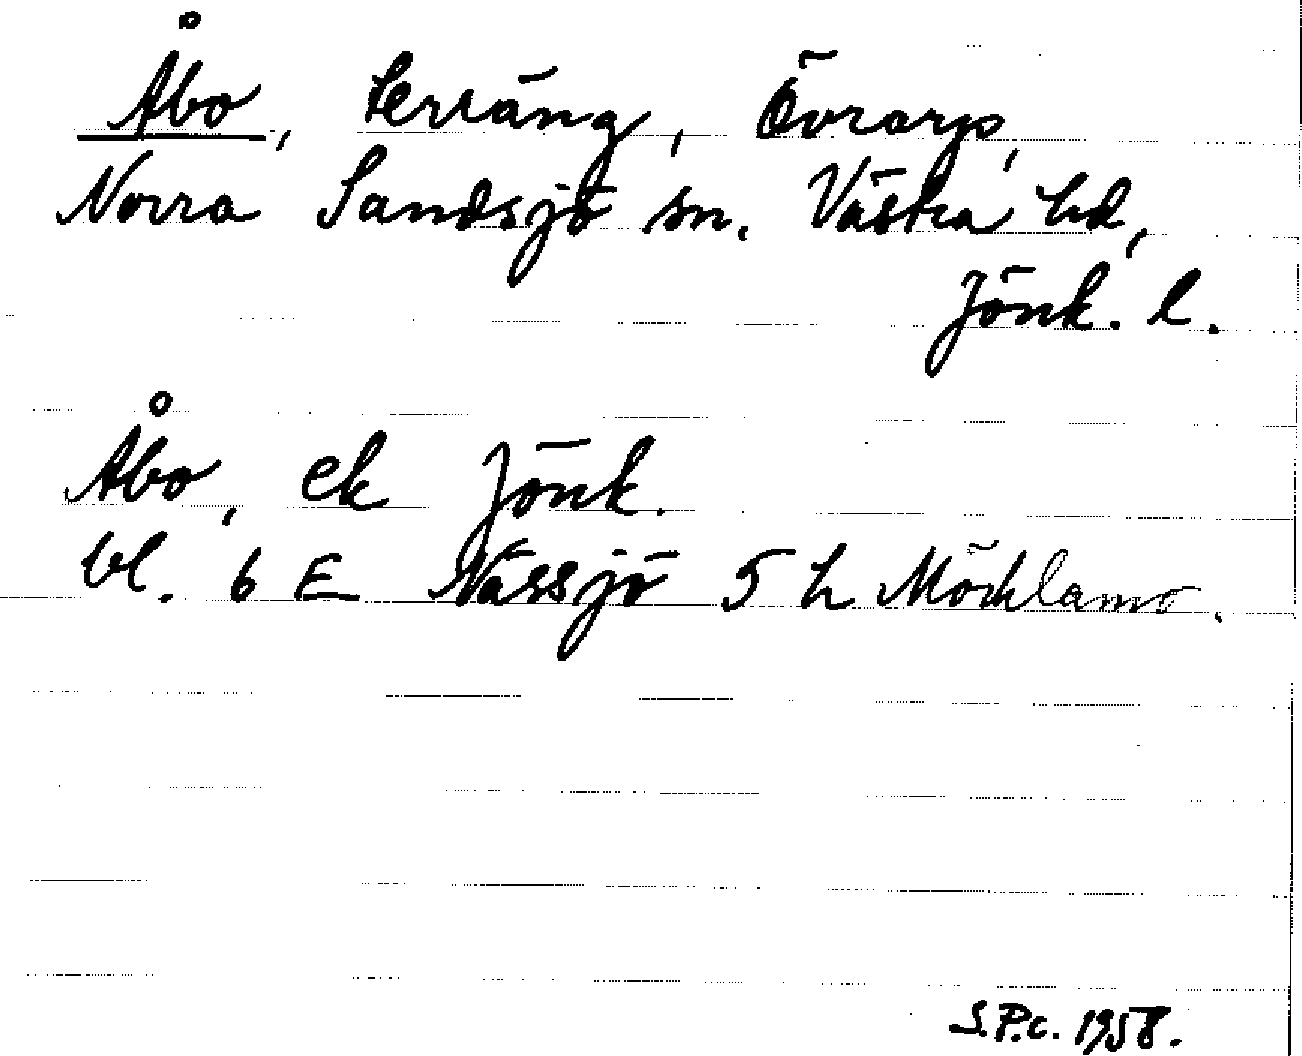 Åbo, terräng, Övrarp,
Norra Sandsjö sn. Västra hd,
Jönk. l.
Åbo, ek Jönk.
bl. 6 E Nässjö 5 h Möcklamo.
S.P.c. 1958.